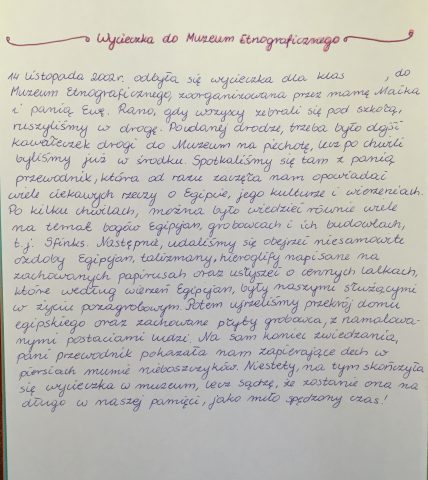 Wycieczka do Muzeum Etnograficznego
14 listopada 2002r. odbyła się wycieczka dla klas , do
Muzeum Etnograficznego, zoorganizowana przez mamę Maika
i panią Ewę. Rano, gdy wszyscy zebrali się pod szkołą,
ruszyliśmy w drogę. Poudanej drodze, trzeba było dojść
kawałeczek drogi do Muzeum na piechotę, lecz po chwili
byliśmy już w środku. Spotkaliśmy się tam z panią
przewodnik, która od razu zaczęła nam opowiadać
wiele ciekawych rzeczy o Egipcie, jego kulturze i wierzeniach.
Po kilku chwilach, można było wiedzieć równie wiele
na temat bogów Egipcjan, grobowcach i ich budowlach,
t.j. Sfinks. Następnie, udaliśmy się obejrzeć niesamowite
ozdoby Egipcjan, talizmany, hieroglify napisane na
zachowanych papirusach oraz usłyszeć o cennych lalkach,
które według wierzeń Egipcjan, były naszymi służącymi
w życiu pozagrobowym. Potem ujrzeliśmy przekrój domu
egipskiego oraz zachowane płyty grobowca, z namalowa-
nymi postaciami ludzi. Na sam koniec zwiedzania,
pani przewodnik pokazała nam zapierające dech w
piersiach mumie nieboszczyków. Niestety, na tym skończyła
się wycieczka w muzeum, lecz sądzę, że zostanie ona na
długo w naszej pamięci, jako miło spędzony czas!